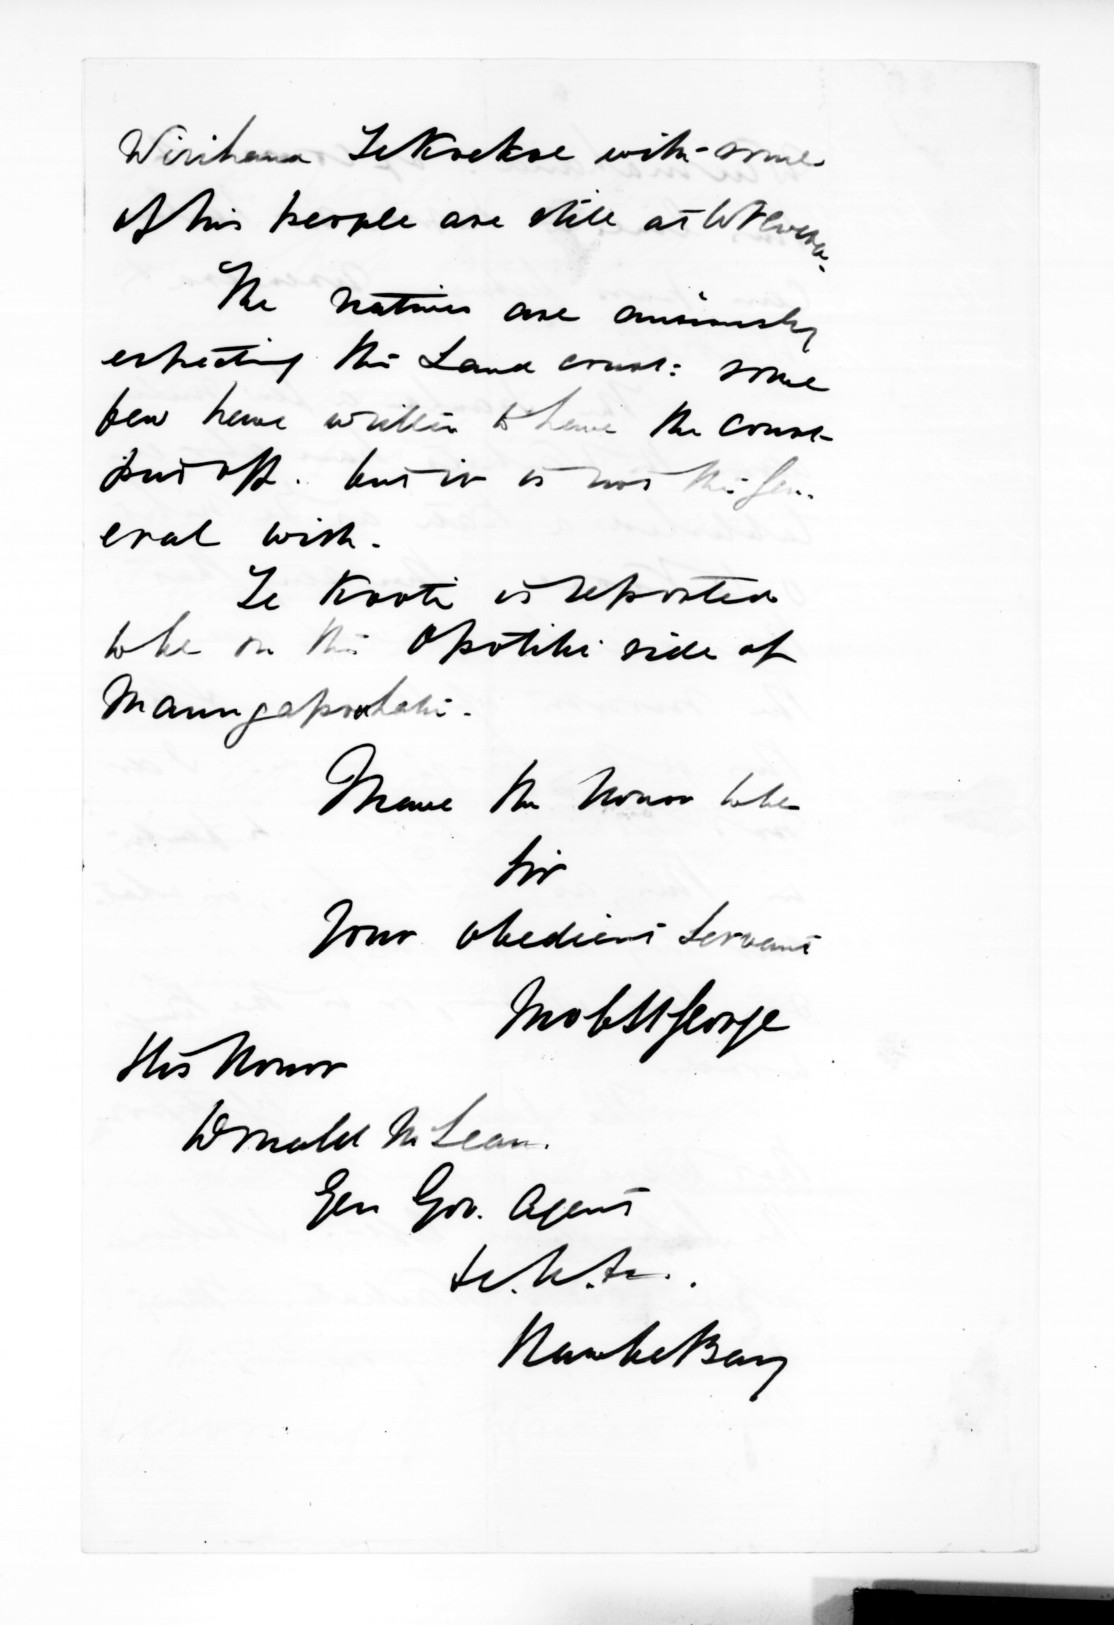 Wirihana Te Koekoe with some
of his people are still at Wairoa.
The natives are anxiously
expecting the Land court: some
few have written to have the court
put off. but it is not the gen-
eral wish.
Te Kooti is reported
to be on the Opotiki side of
Maungapohatu.
I have the honor to be
Sir
Your obedient servant
His Honor
Donald McLean.
Gen Gov. Agent
&c. &c. &c.
Hawke Bay